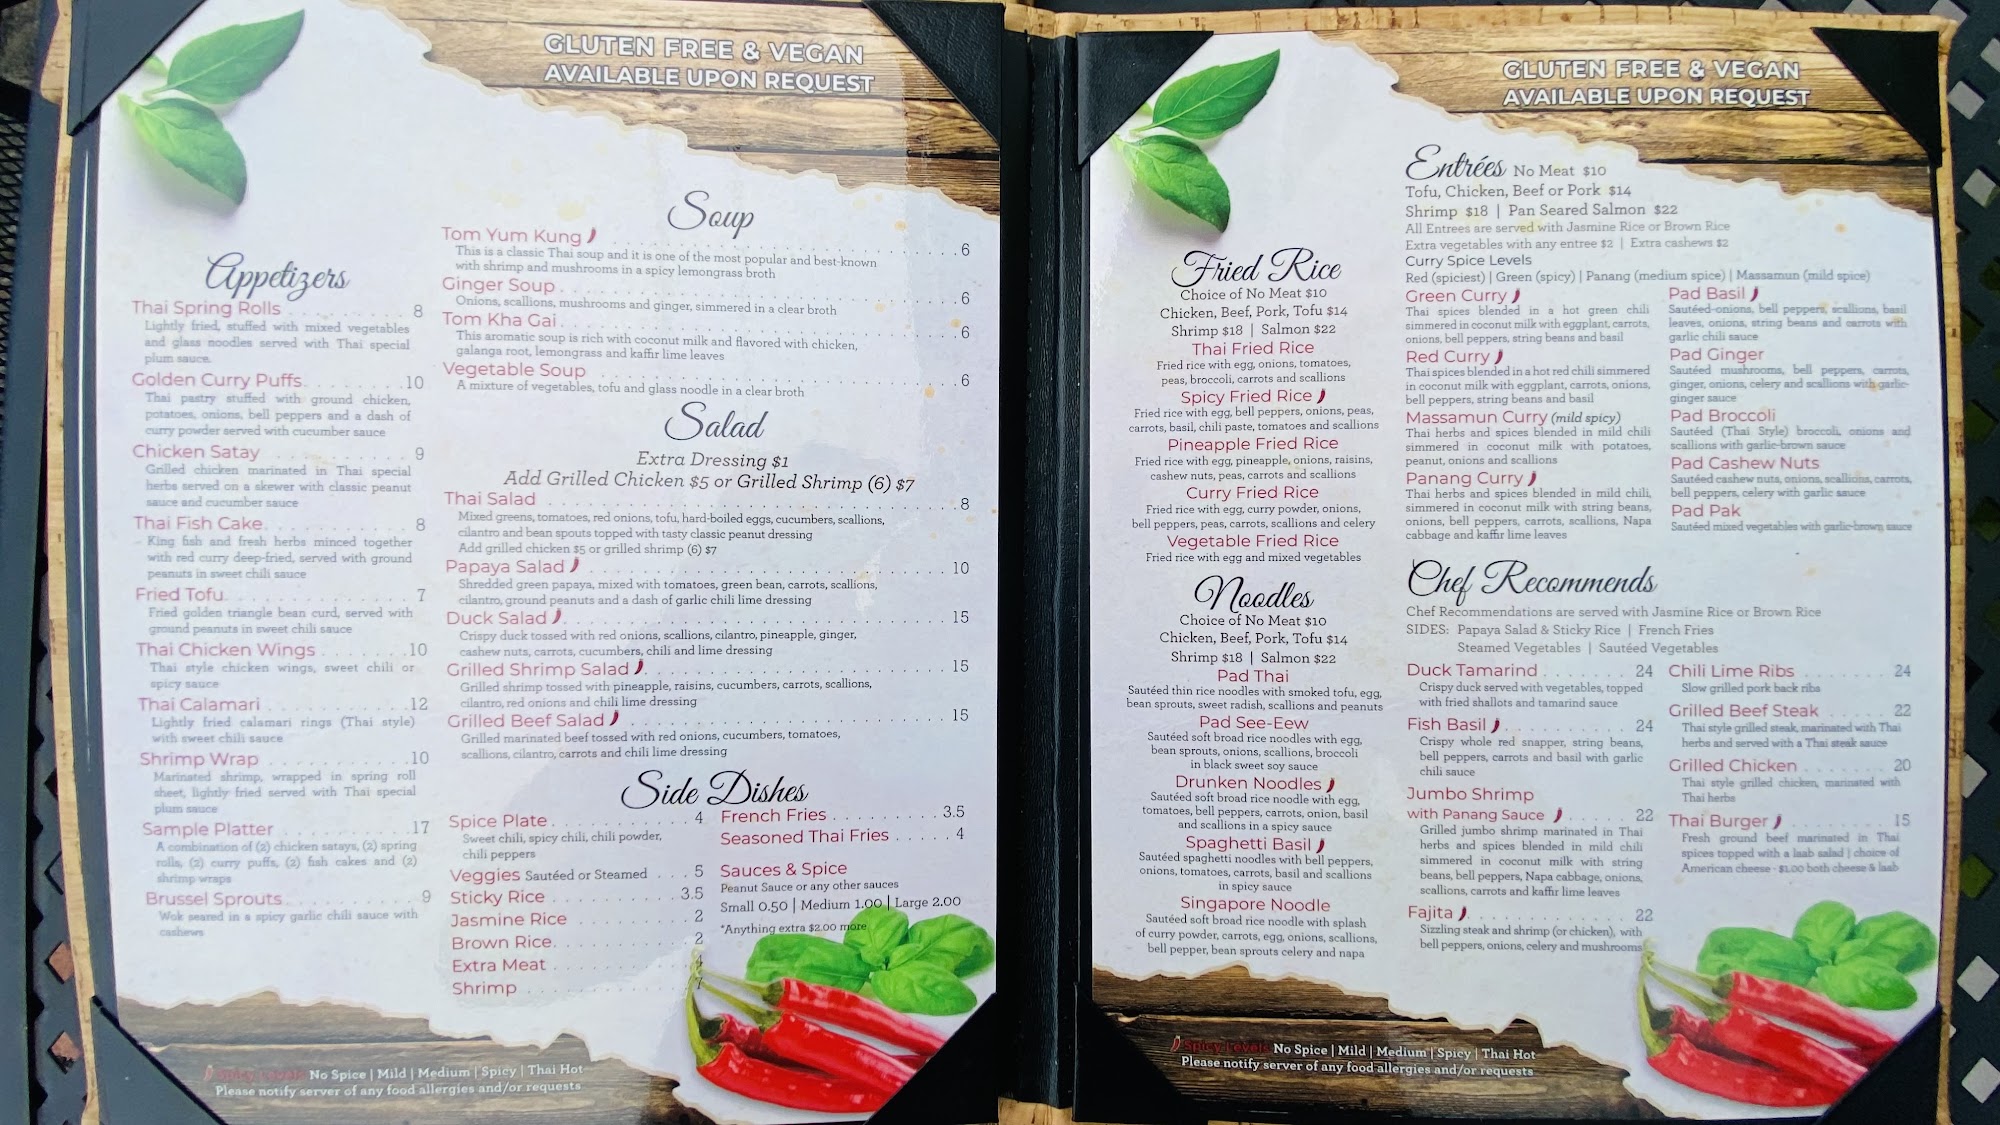 GLUTEN FREE & VEGAN
AVAILABLE UPON REQUEST
Appetizers
Thai Spring Rolls . . . . . . . . . . 8
Lightly fried, stuffed with mixed vegetables
and glass noodles served with Thai special
plum sauce.
Golden Curry Puffs. . . . . . . . .10
Thai pastry stuffed with ground chicken,
potatoes, onions, bell peppers and a dash of
curry powder served with cucumber sauce
Chicken Satay . . . . . . . . . . . . 9
Grilled chicken marinated in Thai special
herbs served on a skewer with classic peanut
sauce and cucumber sauce
Thai Fish Cake. . . . . . . . . . . . 8
King fish and fresh herbs minced together
with red curry deep-fried, served with ground
peanuts in sweet chili sauce
Fried Tofu. . . . . . . . . . . . . . . 7
Fried golden triangle bean curd, served with
ground peanuts in sweet chili sauce
Thai Chicken Wings . . . . . . . .10
Thai style chicken wings, sweet chili or
spicy sauce
Thai Calamari . . . . . . . . . . . .12
Lightly fried calamari rings (Thai style)
with sweet chili sauce
Shrimp Wrap . . . . . . . . . . . .10
Marinated shrimp, wrapped in spring roll
sheet, lightly fried served with Thai special
plum sauce
Sample Platter . . . . . . . . . . .17
A combination of (2) chicken satays, (2) spring
rolls, (2) curry puffs, (2) fish cakes and (2)
shrimp wraps
Brussel Sprouts. . . . . . . . . . . 9
Wok seared in a spicy garlic chili sauce with
cashews
Soup
Tom Yum Kung . . . . . . . . . . . . 6
This is a classic Thai soup and it is one of the most popular and best-known
with shrimp and mushrooms in a spicy lemongrass broth
Ginger Soup. . . . . . . . . . . . 6
Onions, scallions, mushrooms and ginger, simmered in a clear broth
Tom Kha Gai. . . . . . . . . . . . 6
This aromatic soup is rich with coconut milk and flavored with chicken,
galanga root, lemongrass and kaffir lime leaves
Vegetable Soup . . . . . . . . . . . . 6
A mixture of vegetables, tofu and glass noodle in a clear broth
Salad
Extra Dressing $1
Add Grilled Chicken $5 or Grilled Shrimp (6) $7
Thai Salad . . . . . . . . . . . . 8
Mixed greens, tomatoes, red onions, tofu, hard-boiled eggs, cucumbers, scallions,
cilantro and bean spouts topped with tasty classic peanut dressing
Add grilled chicken $5 or grilled shrimp (6) $7
Papaya Salad . . . . . . . . . . . . 10
Shredded green papaya, mixed with tomatoes, green bean, carrots, scallions,
cilantro, ground peanuts and a dash of garlic chili lime dressing
Duck Salad . . . . . . . . . . . . 15
Crispy duck tossed with red onions, scallions, cilantro, pineapple, ginger,
cashew nuts, carrots, cucumbers, chili and lime dressing
Grilled Shrimp Salad . . . . . . . . . . . . 15
Grilled shrimp tossed with pineapple, raisins, cucumbers, carrots, scallions,
cilantro, red onions and chili lime dressing
Grilled Beef Salad . . . . . . . . . . . . 15
Grilled marinated beef tossed with red onions, cucumbers, tomatoes,
scallions, cilantro, carrots and chili lime dressing
Side Dishes
Spice Plate. . . . . . . . . . . . 4
Sweet chili, spicy chili, chili powder,
chili peppers
Veggies Sautéed or Steamed . . . 5
Sticky Rice . . . . . . . . . . . 3.5
Jasmine Rice . . . . . . . . . . 2
Brown Rice. . . . . . . . . . . 2
Extra Meat . . . . . . . . . . . 4
Shrimp . . . . . . . . . . . . . 7
French Fries . . . . . . . . . 3.5
Seasoned Thai Fries . . . . . 4
Sauces & Spice
Peanut Sauce or any other sauces
Small 0.50 | Medium 1.00 | Large 2.00
*Anything extra $2.00 more
Spicy Levels No Spice | Mild | Medium | Spicy | Thai Hot
Please notify server of any food allergies and/or requests
GLUTEN FREE & VEGAN
AVAILABLE UPON REQUEST
Fried Rice
Choice of No Meat $10
Chicken, Beef, Pork, Tofu $14
Shrimp $18 | Salmon $22
Thai Fried Rice
Fried rice with egg, onions, tomatoes,
peas, broccoli, carrots and scallions
Spicy Fried Rice
Fried rice with egg, bell peppers, onions, peas,
carrots, basil, chili paste, tomatoes and scallions
Pineapple Fried Rice
Fried rice with egg, pineapple, onions, raisins,
cashew nuts, peas, carrots and scallions
Curry Fried Rice
Fried rice with egg, curry powder, onions,
bell peppers, peas, carrots, scallions and celery
Vegetable Fried Rice
Fried rice with egg and mixed vegetables
Noodles
Choice of No Meat $10
Chicken, Beef, Pork, Tofu $14
Shrimp $18 | Salmon $22
Pad Thai
Sautéed thin rice noodles with smoked tofu, egg,
bean sprouts, sweet radish, scallions and peanuts
Pad See-Eew
Sautéed soft broad rice noodles with egg,
bean sprouts, onions, scallions, broccoli
in black sweet soy sauce
Drunken Noodles
Sautéed soft broad rice noodle with egg,
tomatoes, bell peppers, carrots, onion, basil
and scallions in a spicy sauce
Spaghetti Basil
Sautéed spaghetti noodles with bell peppers,
onions, tomatoes, carrots, basil and scallions
in spicy sauce
Singapore Noodle
Sautéed soft broad rice noodle with splash
of curry powder, carrots, egg, onions, scallions,
bell pepper, bean sprouts celery and napa
Entrées No Meat $10
Tofu, Chicken, Beef or Pork $14
Shrimp $18 | Pan Seared Salmon $22
All Entrees are served with Jasmine Rice or Brown Rice
Extra vegetables with any entree $2 | Extra cashews $2
Curry Spice Levels
Red (spiciest) | Green (spicy) | Panang (medium spice) | Massamun (mild spice)
Green Curry
Thai spices blended in a hot green chili
simmered in coconut milk with eggplant, carrots,
onions, bell peppers, string beans and basil
Red Curry
Thai spices blended in a hot red chili simmered
in coconut milk with eggplant, carrots, onions,
bell peppers, string beans and basil
Massamun Curry (mild spicy)
Thai herbs and spices blended in mild chili
simmered in coconut milk with potatoes,
peanut, onions and scallions
Panang Curry
Thai herbs and spices blended in mild chili,
simmered in coconut milk with string beans,
onions, bell peppers, carrots, scallions, Napa
cabbage and kaffir lime leaves
Pad Basil
Sautéed-onions, bell peppers, scallions, basil
leaves, onions, string beans and carrots with
garlic chili sauce
Pad Ginger
Sautéed mushrooms, bell peppers, carrots,
ginger, onions, celery and scallions with garlic-
ginger sauce
Pad Broccoli
Sautéed (Thai Style) broccoli, onions and
scallions with garlic-brown sauce
Pad Cashew Nuts
Sautéed cashew nuts, onions, scallions, carrots,
bell peppers, celery with garlic sauce
Pad Pak
Sautéed mixed vegetables with garlic-brown sauce
Chef Recommends
Chef Recommendations are served with Jasmine Rice or Brown Rice
SIDES: Papaya Salad & Sticky Rice | French Fries
Steamed Vegetables | Sautéed Vegetables
Duck Tamarind . . . . . . . . 24
Crispy duck served with vegetables, topped
with fried shallots and tamarind sauce
Fish Basil . . . . . . . . . . . . 24
Crispy whole red snapper, string beans,
bell peppers, carrots and basil with garlic
chili sauce
Jumbo Shrimp
with Panang Sauce . . . . . . 22
Grilled jumbo shrimp marinated in Thai
herbs and spices blended in mild chili
simmered in coconut milk with string
beans, bell peppers, Napa cabbage, onions,
scallions, carrots and kaffir lime leaves
Fajita . . . . . . . . . . . . . . 22
Sizzling steak and shrimp (or chicken), with
bell peppers, onions, celery and mushrooms
Chili Lime Ribs . . . . . . . . 24
Slow grilled pork back ribs
Grilled Beef Steak . . . . . 22
Thai style grilled steak, marinated with Thai
herbs and served with a Thai steak sauce
Grilled Chicken . . . . . . . 20
Thai style grilled chicken, marinated with
Thai herbs
Thai Burger . . . . . . . . . 15
Fresh ground beef marinated in Thai
spices topped with a laab salad | choice of
American cheese - $1.00 both cheese & laab
Spicy Levels No Spice | Mild | Medium | Spicy | Thai Hot
Please notify server of any food allergies and/or requests